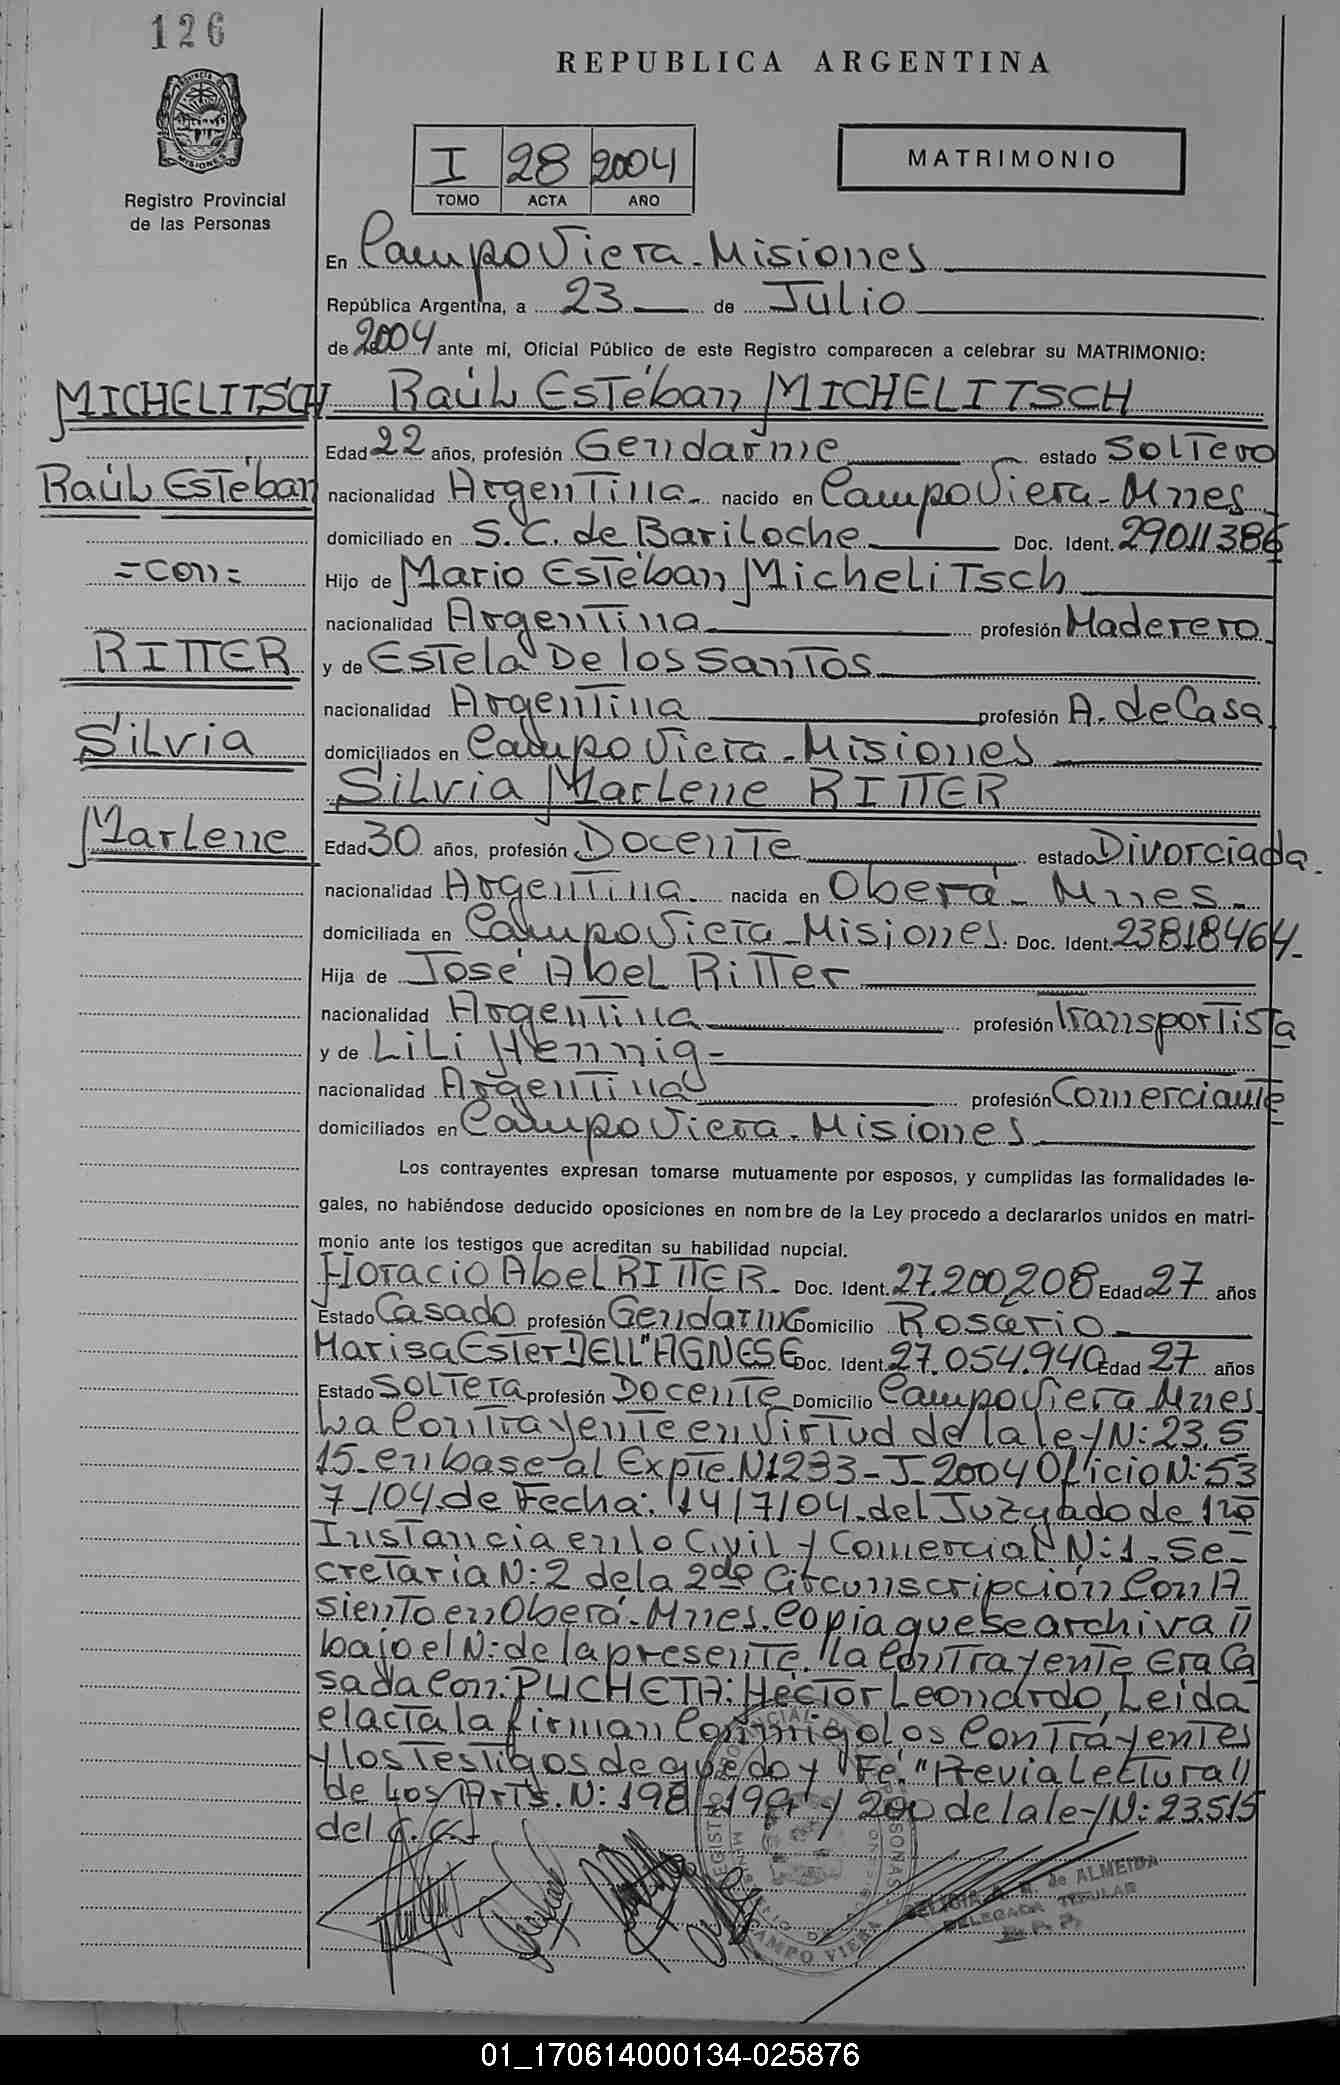 126
REPUBLICA ARGENTINA
MISIONES
Registro Provincial
de las Personas
I 28 2004
TOMO ACTA AÑO
MATRIMONIO
En Campo Viera - Misiones
República Argentina, a 23 de Julio
de 2004 ante mí, Oficial Público de este Registro comparecen a celebrar su MATRIMONIO:
MICHELITSCH
Raúl Estéban
=con=
RITTER
Silvia
Marlene
Raúl Estéban MICHELITSCH
Edad 22 años, profesión Gendarme estado Soltero
nacionalidad Argentina - nacido en Campo Viera - Mnes
domiciliado en S. C. de Bariloche Doc. Ident. 29011386
Hijo de Mario Estéban Michelitsch
nacionalidad Argentina profesión Maderero
y de Estela De los Santos
nacionalidad Argentina profesión A. de Casa
domiciliados en Campo Viera - Misiones
Silvia Marlene RITTER
Edad 30 años, profesión Docente estado Divorciada.
nacionalidad Argentina - nacida en Oberá - Mnes -
domiciliada en Campo Viera - Misiones. Doc. Ident. 23818464 -
Hija de José Abel Ritter
nacionalidad Argentina profesión Transportista
y de Lili Hennig -
nacionalidad Argentina profesión Comerciante
domiciliados en Campo Viera - Misiones
Los contrayentes expresan tomarse mutuamente por esposos, y cumplidas las formalidades le-
gales, no habiéndose deducido oposiciones en nombre de la Ley procedo a declararlos unidos en matri-
monio ante los testigos que acreditan su habilidad nupcial.
Horacio Abel RITTER - Doc. Ident. 27.200,208 Edad 27 años
Estado Casado profesión Gendarme Domicilio Rosario -
Marisa Ester DELL"AGNESE Doc. Ident. 27.054.940 Edad 27 años
Estado Soltera profesión Docente Domicilio Campo Viera Mnes
La Contrayente en virtud de la ley N: 23.5
15 - en base al Expte. N1233 - J - 2004 Oficio N: 53
7 -/04 de Fecha: 14/7/04 - del Juzgado de 1ro
Instancia en lo Civil y Comercial N: 1 - Se-
cretaria N: 2 de la 2da Circunscripción Con A
siento en Oberá - Mnes. Copia que se archiva //
bajo el N: de la presente. la Contrayente Era Ca
sada Con: PUCHETA: Héctor Leonardo, Leida
el acta la firman Conmigo los Contrayentes
y los Testigos de que doy Fé. "Previa Lectura //
de Los Arts. N: 198 - 199 y 200 de la ley N: 23.515
del C. C.
CAMPO VIERA
DELICIA A. R. de ALMEIDA
DELEGADA TITULAR
R. P. P.
01_170614000134-025876